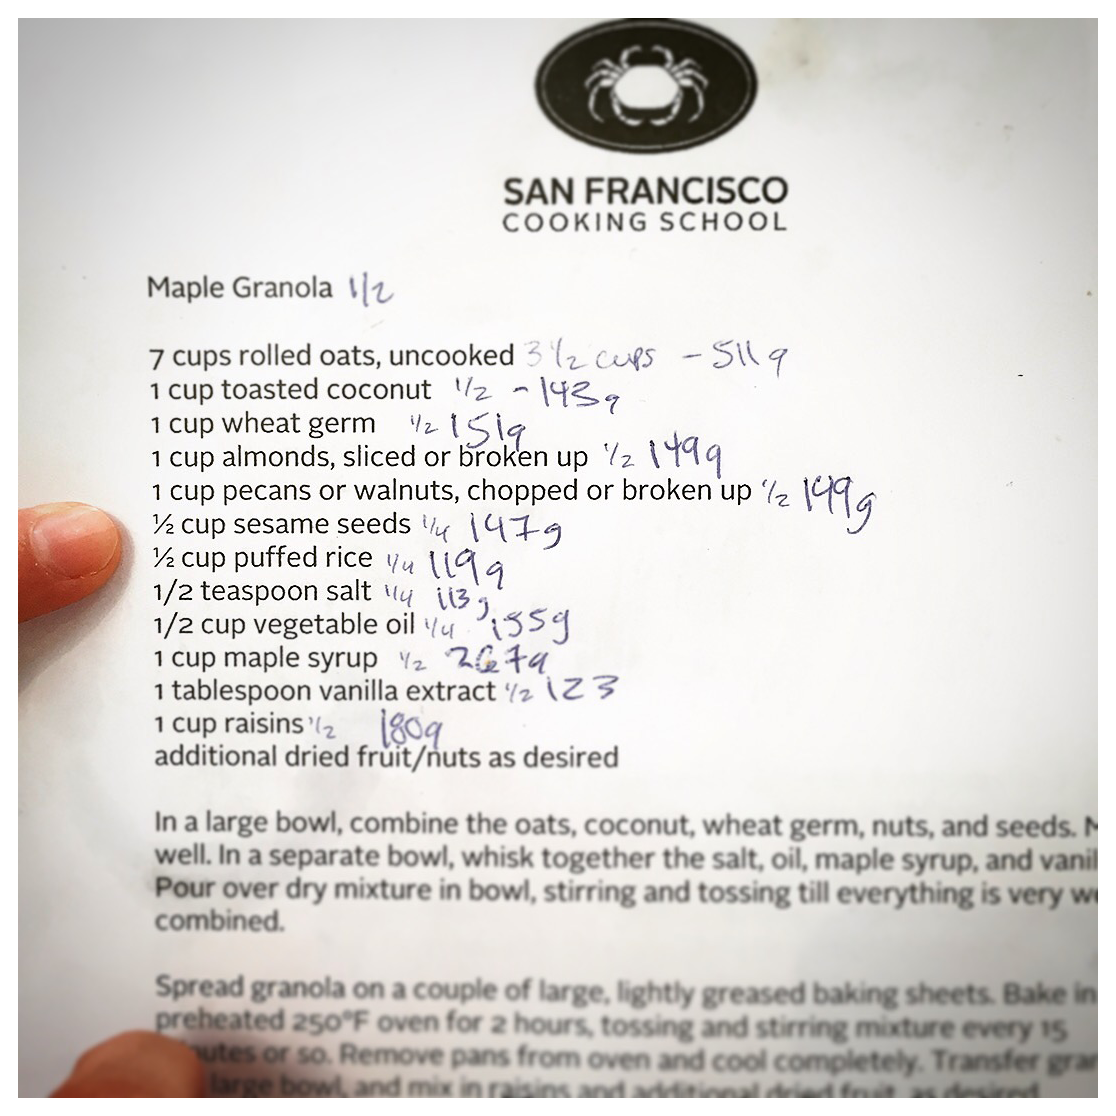 SAN FRANCISCO
COOKING SCHOOL
Maple Granola 1/2
7 cups rolled oats, uncooked 3 1/2 cups - 511g
1 cup toasted coconut 1/2 - 143g
1 cup wheat germ 1/2 151g
1 cup almonds, sliced or broken up 1/2 149g
1 cup pecans or walnuts, chopped or broken up 1/2 149g
½ cup sesame seeds 1/4 147g
½ cup puffed rice 1/4 119g
1/2 teaspoon salt 1/4 113g
1/2 cup vegetable oil 1/4 155g
1 cup maple syrup 1/2 267g
1 tablespoon vanilla extract 1/2 123
1 cup raisins 1/2 180g
additional dried fruit/nuts as desired
In a large bowl, combine the oats, coconut, wheat germ, nuts, and seeds.
well. In a separate bowl, whisk together the salt, oil, maple syrup, and vanil
Pour over dry mixture in bowl, stirring and tossing till everything is very we
combined.
Spread granola on a couple of large, lightly greased baking sheets. Bake in
preheated 250°F oven for 2 hours, tossing and stirring mixture every 15
utes or so. Remove pans from oven and cool completely. Transfer gran
large bowl, and mix in raisins and additional dried fruit, as desired.